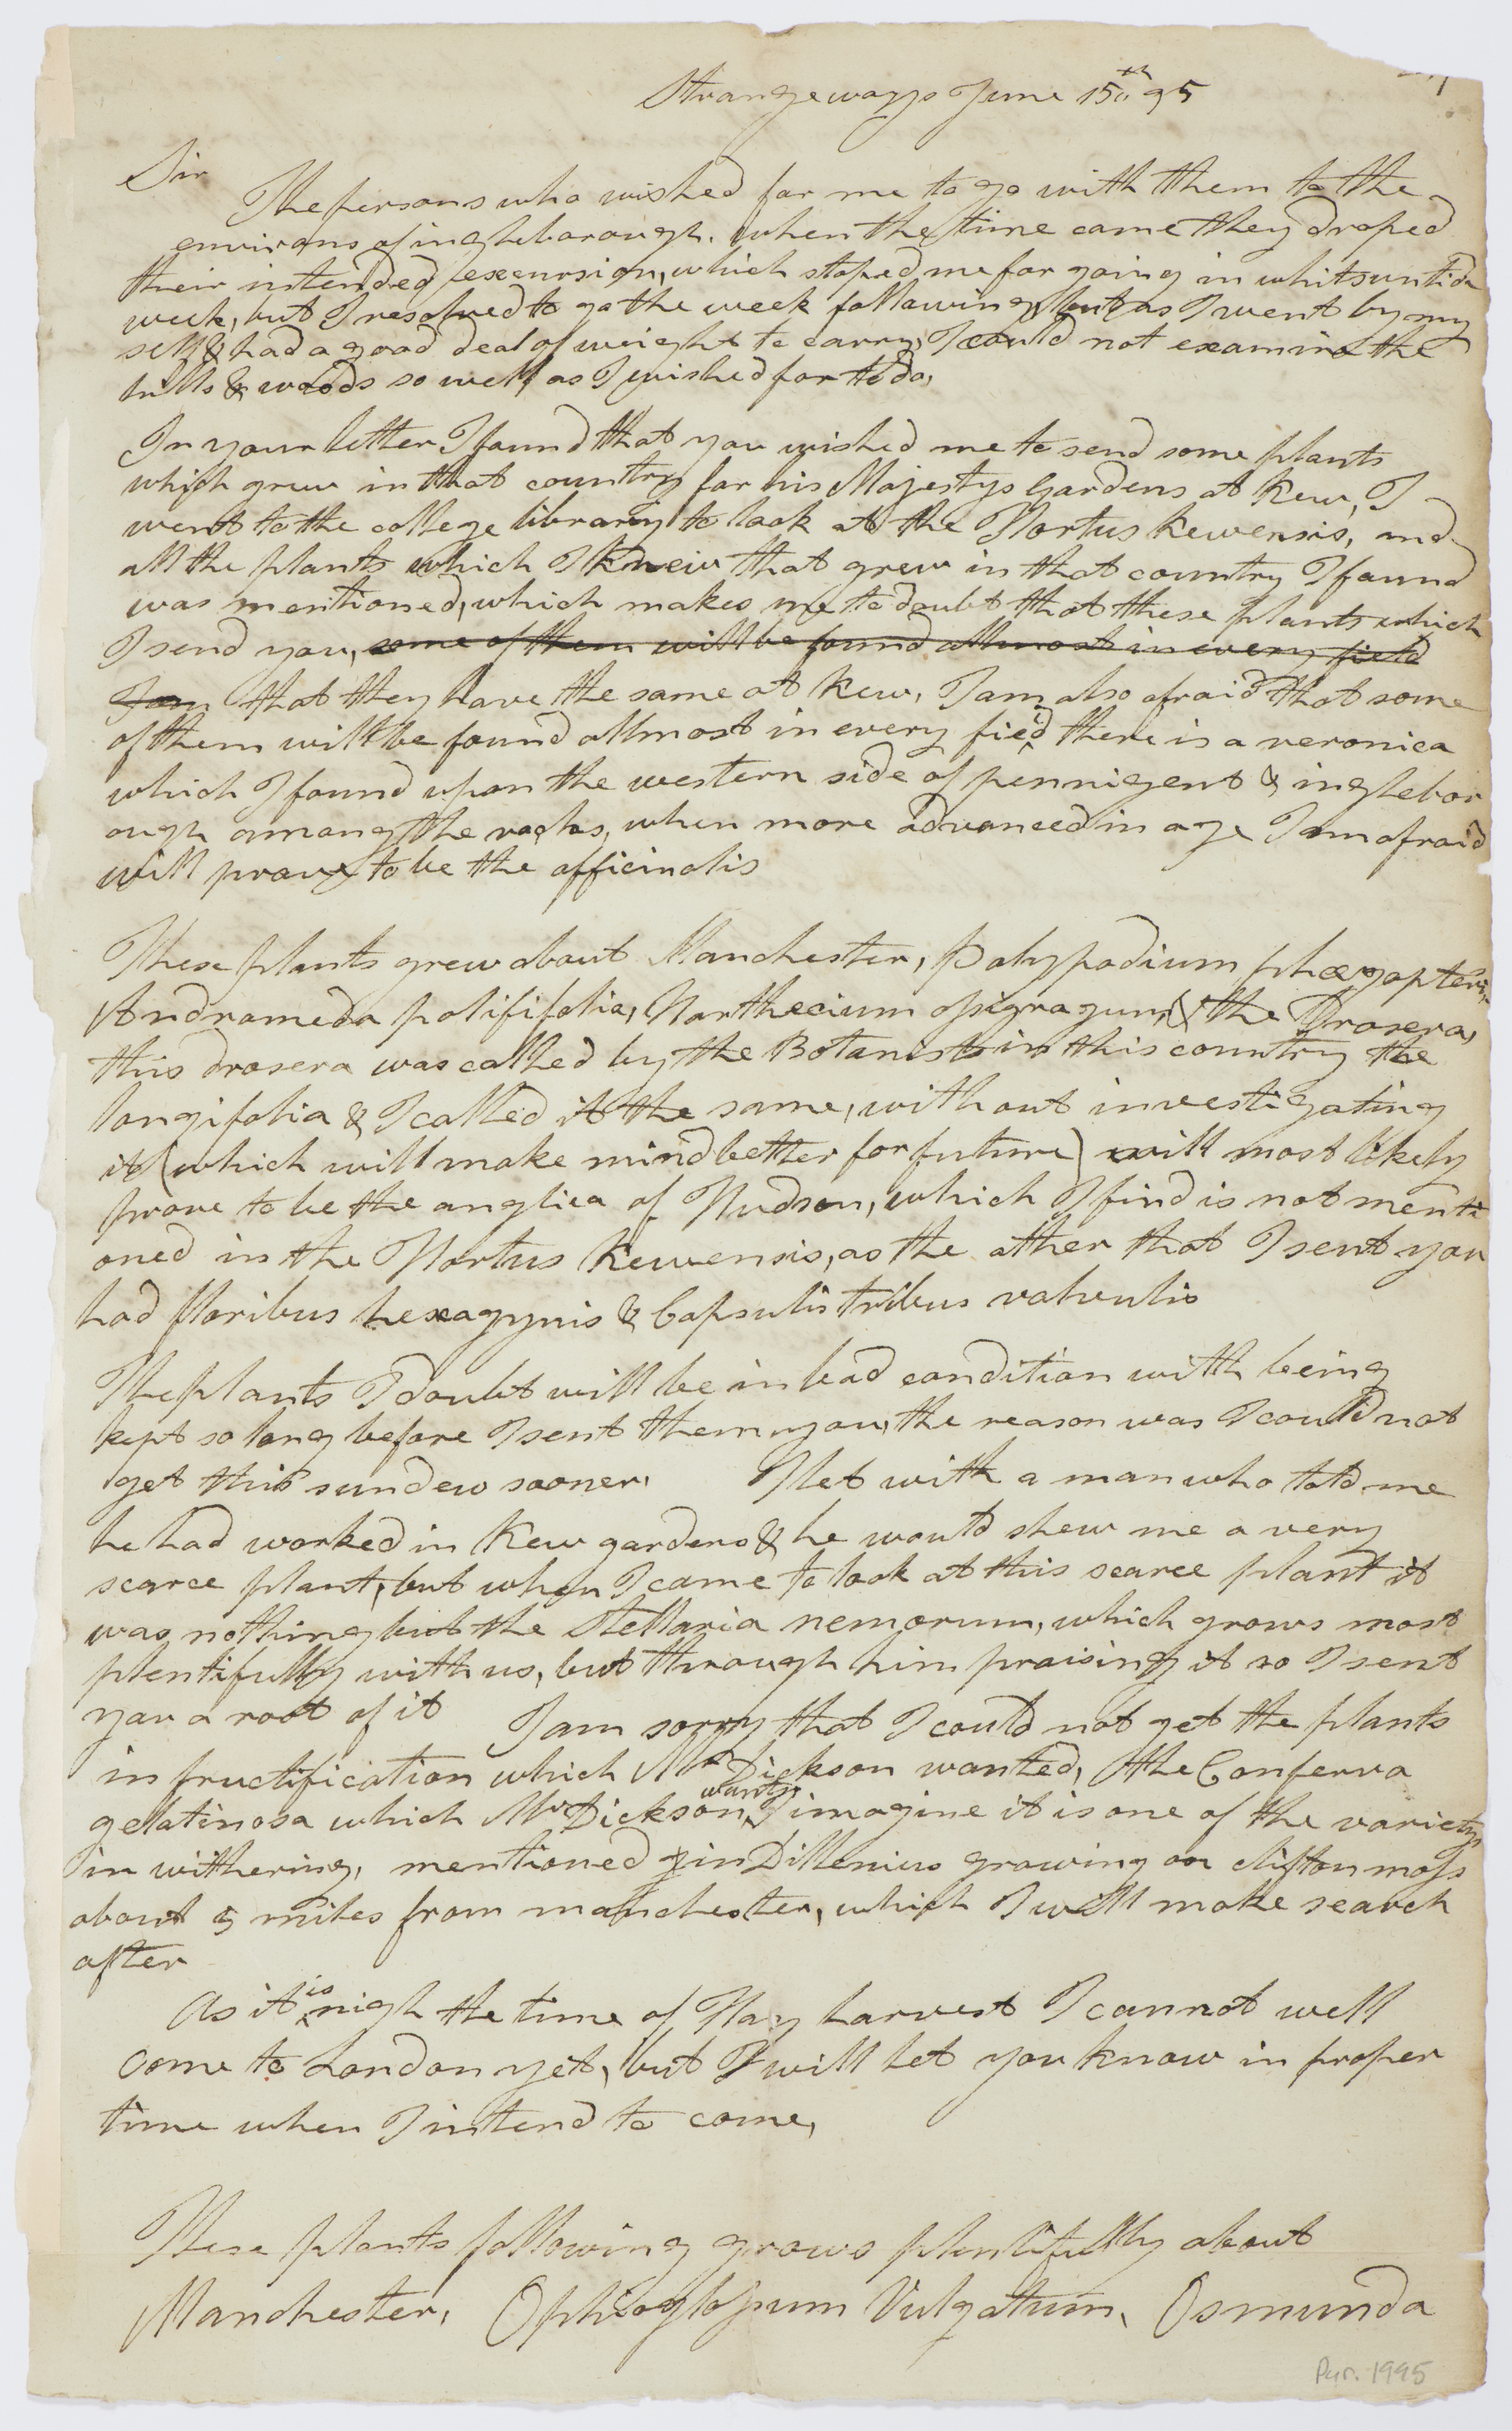 Strangeways June 15th 95
Sir
The persons who wished for me to go with them to the
environs of ingleborough, when the time came they droped
their intended excursion, which stoped me for going in whitsuntide
week, but I resolved to go the week following, but as I went by my
self & had a good deal of weight to carry, I could not examine the
hills & woods so well as I wished for to do,
In your letter I found that you wished me to send some plants
which grew in that country for his Majestys Gardens at Kew, I
went to the college library to look at the Hortus Kewensis, and
all the plants which I knew that grew in that country I found
was mentioned, which makes me to doubt that these plants which
I send you, some of them will be found allmost in every field
I am that they have the same at Kew, I am also afraid that some
of them will be found allmost in every field there is a veronica
which I found upon the western side of pennigent & inglebor
ough among the rocks, when more advanced in age I am afraid
will prove to be the officinalis
These plants grew about Manchester, Polypodium phægopteris,
Andromeda polififolia, Narthecium ossigragum, & the Drosera,
this drosera was called by the Botanists in this country the
longifolia & I called it the same, without investigating
it (which will make mind better for future) will most likely
prove to be the anglica of Hudson, which I find is not menti
oned in the Hortus Kewensis, as the other that I sent you
had floribus hexagynis & Capsulis tribus valvulis
The plants I doubt will be in bad condition with being
kept so long before I sent them you, the reason was I could not
get this sundew sooner, Met with a man who told me
he had worked in Kew gardens & he would shew me a very
scarce plant, but when I came to look at this scarce plant it
was nothing but the Stellaria nemorum, which grows most
plentifully with us, but through him praising it so I sent
you a root of it I am sorry that I could not get the plants
in fructification which Mr Dickson wanted, the Conferva
gelatinosa which Mr Dickson wants, I imagine it is one of the varietys
in withering, mentioned in Dillenius growing on clifton moss
about 5 miles from manchester, which I will make search
after
As it is nigh the time of Hay harvest I cannot well
come to London yet, but I will let you know in proper
time when I intend to come,
These plants following grows plentifully about
Manchester, Ophioglossum Vulgatum, Osmunda
Pur. 1995